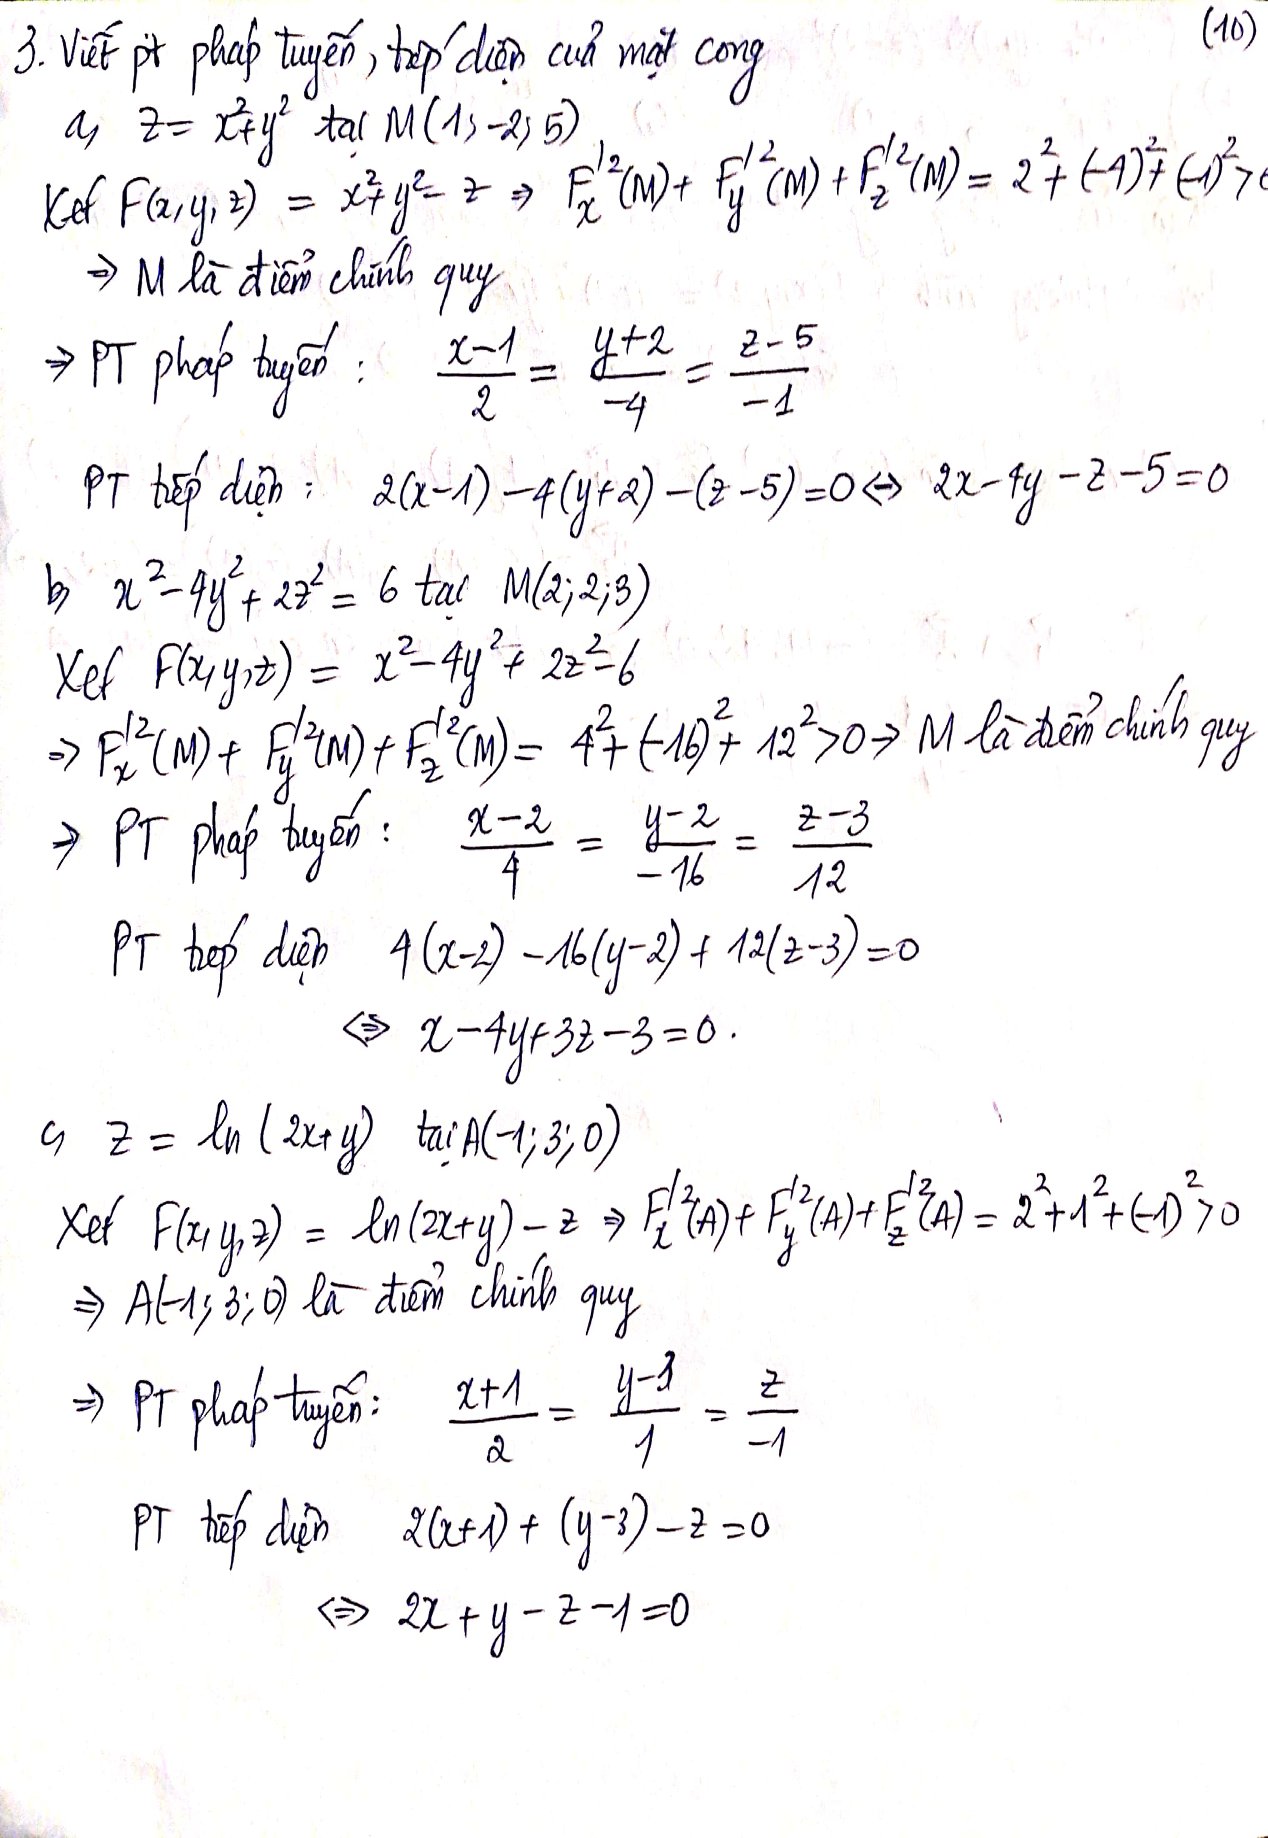 (10)
3. Viết pt pháp tuyến, tiếp diện của mặt cong
a, z = x² + y² tại M(1; -2; 5)
Xét F(x, y, z) = x² + y² - z ⇒ F'ₓ²(M) + F'_y²(M) + F'_z²(M) = 2² + (-4)² + (-1)² > 0
⇒ M là điểm chính quy
⇒ PT pháp tuyến : (x-1)/2 = (y+2)/-4 = (z-5)/-1
PT tiếp diện : 2(x-1) - 4(y+2) - (z-5) = 0 ⇔ 2x - 4y - z - 5 = 0
b, x² - 4y² + 2z² = 6 tại M(2; 2; 3)
Xét F(x, y, z) = x² - 4y² + 2z² - 6
⇒ F'ₓ²(M) + F'_y²(M) + F'_z²(M) = 4² + (-16)² + 12² > 0 ⇒ M là điểm chính quy
⇒ PT pháp tuyến : (x-2)/4 = (y-2)/-16 = (z-3)/12
PT tiếp diện 4(x-2) - 16(y-2) + 12(z-3) = 0
⇔ x - 4y + 3z - 3 = 0.
c, z = ln(2x+y) tại A(-1; 3; 0)
Xét F(x, y, z) = ln(2x+y) - z ⇒ F'ₓ²(A) + F'_y²(A) + F'_z²(A) = 2² + 1² + (-1)² > 0
⇒ A(-1; 3; 0) là điểm chính quy
⇒ PT pháp tuyến : (x+1)/2 = (y-3)/1 = z/-1
PT tiếp diện 2(x+1) + (y-3) - z = 0
⇔ 2x + y - z - 1 = 0